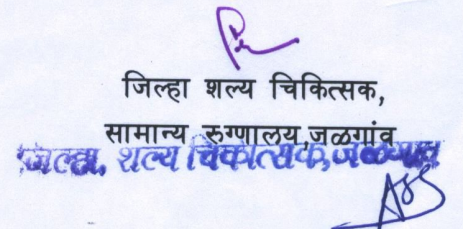 जिल्हा शल्य चिकित्सक,
सामान्य रुग्णालय,जळगांव
जिल्हा, शल्य चिकीत्सक,जळगाव